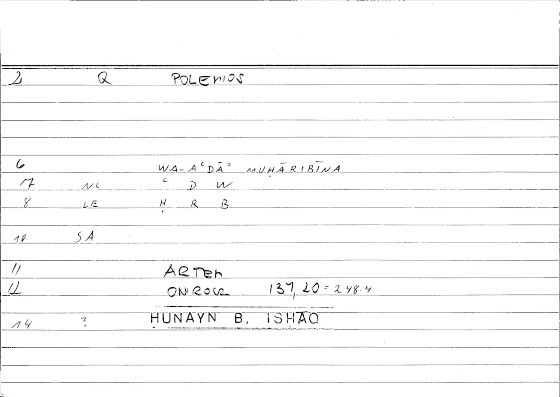 2 Q POLEMOS
6 WA-AʿDĀʾ MUḤĀRIBĪNA
7 NL ʿ D W
8 LE Ḥ R B
10 SA
11 ARTEM
12 ONIROCR 137,20 = 248.4
14 ? ḤUNAYN B. ISḤĀQ